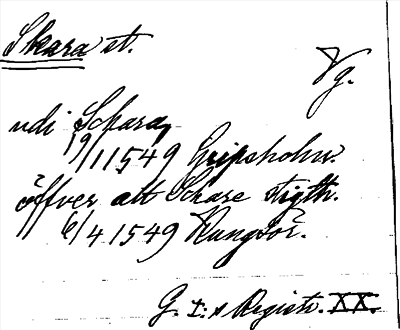 Skara st.
Vg.
udi Schara,
19/1 1549 Gripsholm.
öffver alt Scare stigth.
6/4 1549 Kungsör.
G. I:s Registr. XX.